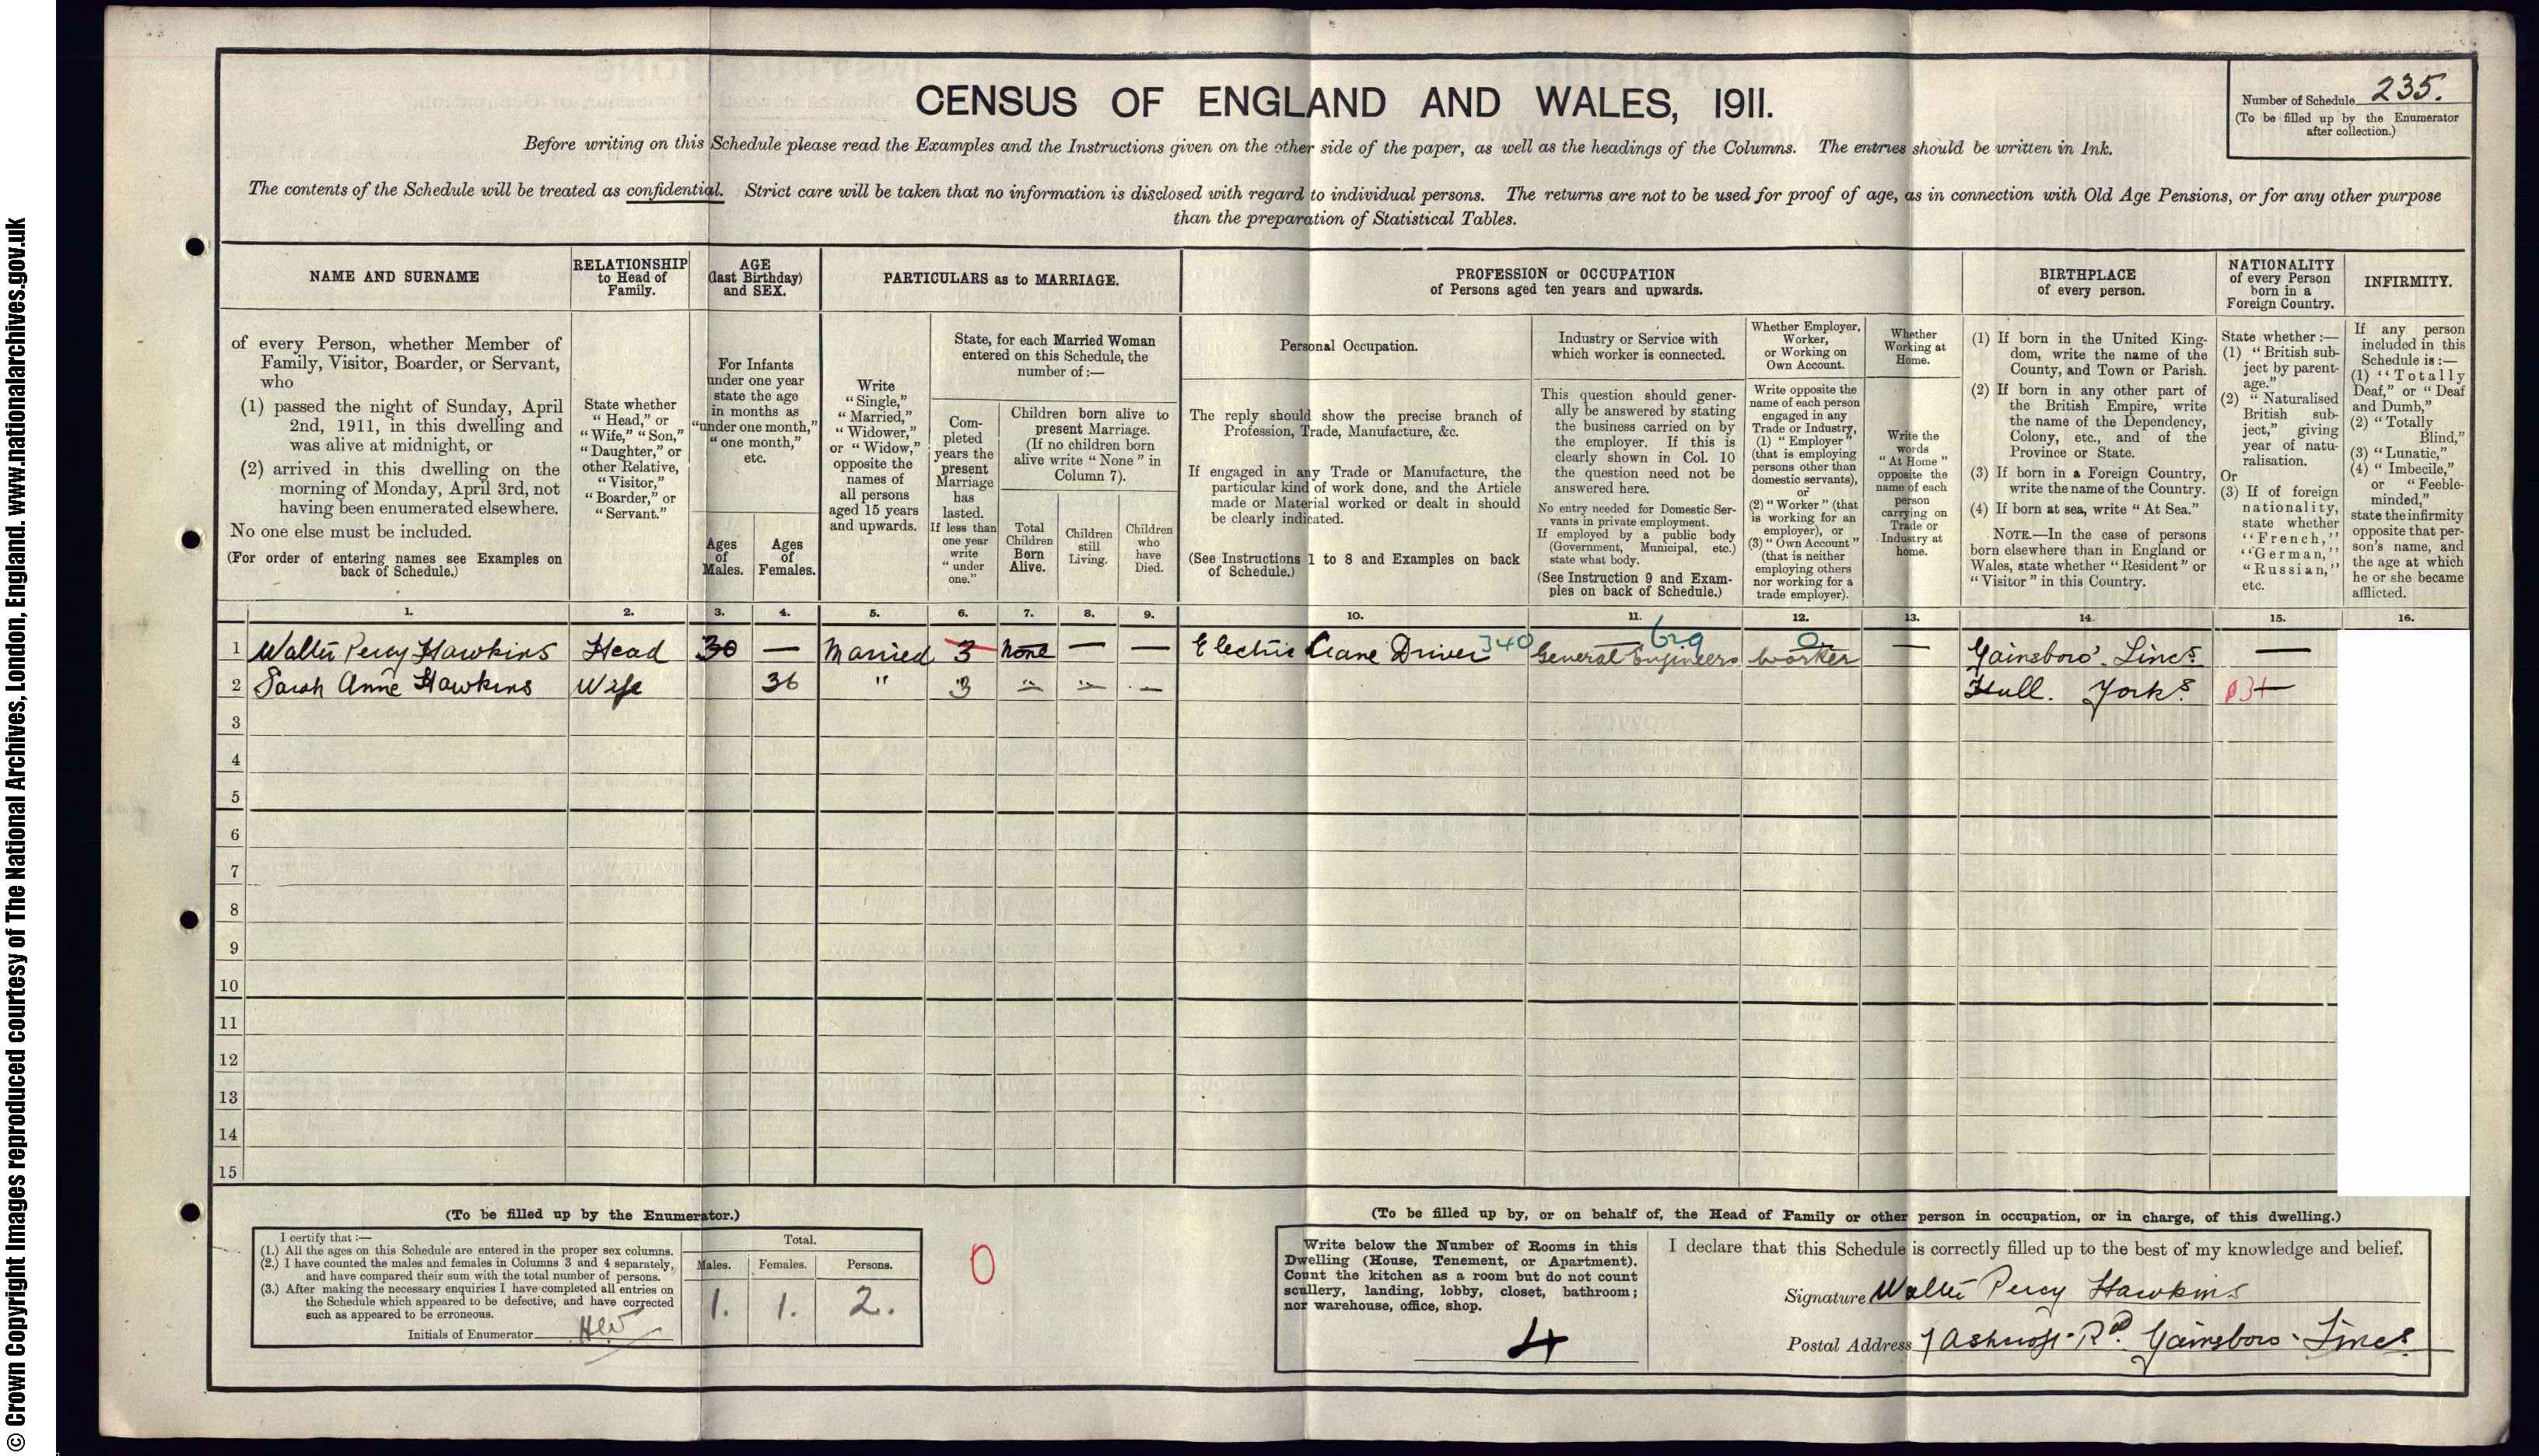 © Crown Copyright Images reproduced courtesy of The National Archives, London, England. www.nationalarchives.gov.uk
CENSUS OF ENGLAND AND WALES, 1911.
Number of Schedule 235.
(To be filled up by the Enumerator
after collection.)
Before writing on this Schedule please read the Examples and the Instructions given on the other side of the paper, as well as the headings of the Columns. The entries should be written in Ink.
The contents of the Schedule will be treated as confidential. Strict care will be taken that no information is disclosed with regard to individual persons. The returns are not to be used for proof of age, as in connection with Old Age Pensions, or for any other purpose
than the preparation of Statistical Tables.
NAME AND SURNAME
of every Person, whether Member of
Family, Visitor, Boarder, or Servant,
who
(1) passed the night of Sunday, April
2nd, 1911, in this dwelling and
was alive at midnight, or
(2) arrived in this dwelling on the
morning of Monday, April 3rd, not
having been enumerated elsewhere.
No one else must be included.
(For order of entering names see Examples on
back of Schedule.)
RELATIONSHIP
to Head of
Family.
State whether
"Head," or
"Wife," "Son,"
"Daughter," or
other Relative,
"Visitor,"
"Boarder," or
"Servant."
AGE
(last Birthday)
and SEX.
For Infants
under one year
state the age
in months as
"under one month,"
"one month,"
etc.
Ages
of
Males.
Ages
of
Females.
PARTICULARS as to MARRIAGE.
Write
"Single,"
"Married,"
"Widower,"
or "Widow,"
opposite the
names of
all persons
aged 15 years
and upwards.
State, for each Married Woman
entered on this Schedule, the
number of:—
Com-
pleted
years the
present
Marriage
has
lasted.
If less than
one year
write
"under
one."
Children born alive to
present Marriage.
(If no children born
alive write "None" in
Column 7).
Total
Children
Born
Alive.
Children
still
Living.
Children
who
have
Died.
PROFESSION or OCCUPATION
of Persons aged ten years and upwards.
Personal Occupation.
The reply should show the precise branch of
Profession, Trade, Manufacture, &c.
If engaged in any Trade or Manufacture, the
particular kind of work done, and the Article
made or Material worked or dealt in should
be clearly indicated.
(See Instructions 1 to 8 and Examples on back
of Schedule.)
Industry or Service with
which worker is connected.
This question should gener-
ally be answered by stating
the business carried on by
the employer. If this is
clearly shown in Col. 10
the question need not be
answered here.
No entry needed for Domestic Ser-
vants in private employment.
If employed by a public body
(Government, Municipal, etc.)
state what body.
(See Instruction 9 and Exam-
ples on back of Schedule.)
Whether Employer,
Worker,
or Working on
Own Account.
Write opposite the
name of each person
engaged in any
Trade or Industry,
(1) "Employer"
(that is employing
persons other than
domestic servants),
or
(2) "Worker" (that
is working for an
employer), or
(3) "Own Account"
(that is neither
employing others
nor working for a
trade employer).
Whether
Working at
Home.
Write the
words
"At Home"
opposite the
name of each
person
carrying on
Trade or
Industry at
home.
BIRTHPLACE
of every person.
(1) If born in the United King-
dom, write the name of the
County, and Town or Parish.
(2) If born in any other part of
the British Empire, write
the name of the Dependency,
Colony, etc., and of the
Province or State.
(3) If born in a Foreign Country,
write the name of the Country.
(4) If born at sea, write "At Sea."
NOTE.—In the case of persons
born elsewhere than in England or
Wales, state whether "Resident" or
"Visitor" in this Country.
NATIONALITY
of every Person
born in a
Foreign Country.
State whether:—
(1) "British sub-
ject by parent-
age."
(2) "Naturalised
British sub-
ject," giving
year of natu-
ralisation.
Or
(3) If of foreign
nationality,
state whether
"French,"
"German,"
"Russian,"
etc.
INFIRMITY.
If any person
included in this
Schedule is:—
(1) "Totally
Deaf," or "Deaf
and Dumb,"
(2) "Totally
Blind,"
(3) "Lunatic,"
(4) "Imbecile,"
or "Feeble-
minded,"
state the infirmity
opposite that per-
son's name, and
the age at which
he or she became
afflicted.
1. 2. 3. 4. 5. 6. 7. 8. 9. 10. 11. 12. 13. 14. 15. 16.
1 Walter Percy Hawkins Head 30 — Married 3 None — — Electric Crane Driver 340 General Engineers 629 Worker 0 — Gainsboro'. Lincs. —
2 Sarah Anne Hawkins Wife 36 " 3 — — — Hull. Yorks. —
3
4
5
6
7
8
9
10
11
12
13
14
15
(To be filled up by the Enumerator.)
I certify that:—
(1.) All the ages on this Schedule are entered in the proper sex columns.
(2.) I have counted the males and females in Columns 3 and 4 separately,
and have compared their sum with the total number of persons.
(3.) After making the necessary enquiries I have completed all entries on
the Schedule which appeared to be defective, and have corrected
such as appeared to be erroneous.
Initials of Enumerator HW
Total.
Males. Females. Persons.
1. 1. 2.
0
(To be filled up by, or on behalf of, the Head of Family or other person in occupation, or in charge, of this dwelling.)
Write below the Number of Rooms in this
Dwelling (House, Tenement, or Apartment).
Count the kitchen as a room but do not count
scullery, landing, lobby, closet, bathroom;
nor warehouse, office, shop.
4
I declare that this Schedule is correctly filled up to the best of my knowledge and belief.
Signature Walter Percy Hawkins
Postal Address 7 Ashcroft Rd. Gainsboro. Lincs